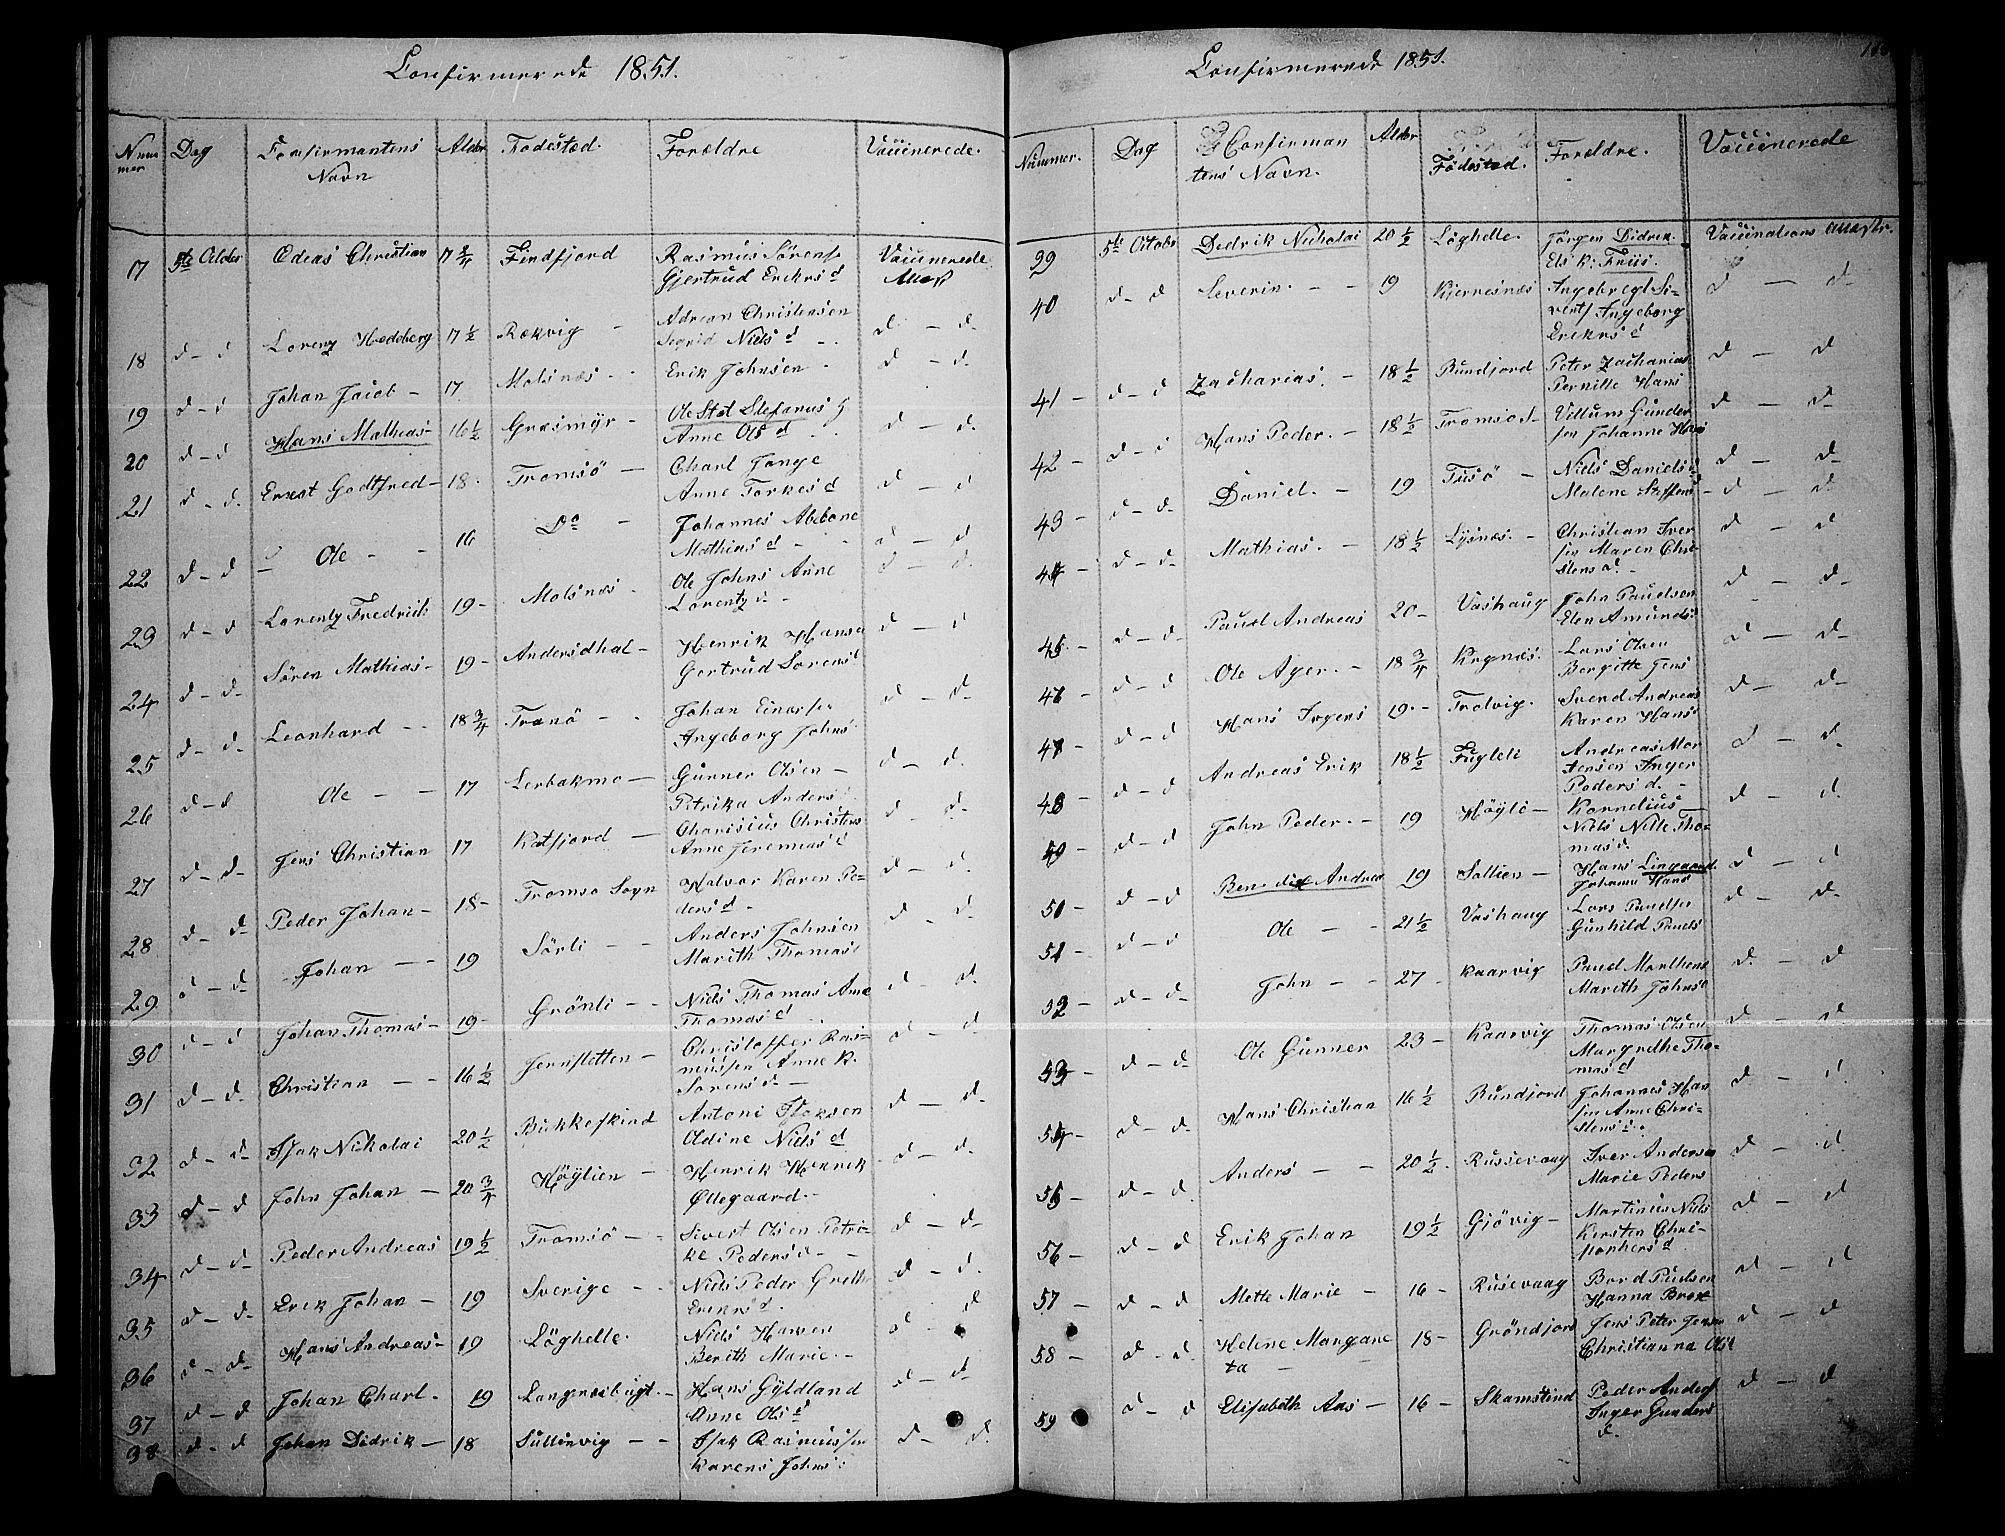 Confirmerede 1851.
Nummer Dag Confirmantens Navn Alder Fødested. Forældre Vaccinerede.
17 5te October Odeas Christian 17 3/4 Findfjord Rasmus Sörens
Gjertrud Eriks d Vaccinerede Attest
18 d - d Lorenz Hedeberg 17 1/2 Rækvig - Adrian Christensen
Sigrid Niels d - d - d.
19 d - d Johan Jacob - 17 Malsnæs - Erik Johnsen - d - d.
20 d - d Hans Mathias - 16 1/2 Græsmÿr - Ole Stefanus
Anne Ols d - d - d.
21 d - d. Ernst Godtfred - 18. Tromsö - Charl
Anne Torkes d d - d
22 d - d Ole - - 16 Do - Johannes Abebone
Mathias d - d - d
23 d - d Lorentz Fredrich 19 - Malsnæs - Ole Johns Anne
Lorentz d - d - d.
24 d - d. Sören Mathias - 19 - Andersdhal - Henrik Hansen
Gertrud Sorens d - d
25 d - d. Leonhard - - 18 3/4 Tranö - - Johan Einers
Ingeborg Johns d - d.
26 d - d Ole - - 17 Lerbakmo - Gunner Olsen -
Petrika Anders d - d.
27 d - d. Jens Christian 17 Katfjord - Charisius Christens
Anne Jeremias d d - d.
28 d - d. Peder Johan - 18 - Tromsö Sogn Halvor Karen Pe-
ders d - d - d.
29 d - d. Johan - - 19 Sörli - - Anders Johnsen
Marith Thomas d - d.
30 d - d Johan Thomas - 19 - Grönli - - Niels Thomas Ane
Thomas d d - d.
31 d - d. Christian - - 16 1/2 Jernsletten - Christoffer Ras-
mussen Anne K.
Sorens d - d - d
32 d - d. Isak Nikolai 20 1/2 Bukkeskind Antoni Isaksen
Oldine Niels d d - d.
33 d - d John Johan - 20 3/4 Höÿlien - Henrik Henrik
Ollegaard - d - d.
34 d - d - Peder Andreas 19 1/2 Tromsö - - Sivert Olsen Petri-
ke Peders d - d - d.
35 d - d. Erik Johan - 19 Sverige - - Niels Peder Greth
Eriks d. d - d.
36 d - d. Hans Andreas - 19 Löghelle. Niels Hansen
Berith Marie - d d
37 d - d Johan Charl. - 19 Langnesbugt. - Hans Gÿldland
Anne Ols d d - d.
38 d - d Johan Didrik - 18 Sullenvig - - Isak Rasmussen
Karen Johns d d - d.
Confirmerede 1851.
Nummer. Dag Confirman
tens Navn. Alder Födested. Forældre. Vaccinerede
39 5te Octobr Didrik Nicholai 20 1/2 Löghelle. Jörgen Didrik
Els K. Friis. Vaccinations attestr.
40 d - d Severin. - - 19 Kiervesnæs Ingebregt Si-
verts Ingeborg
Eriks d d - d.
41 - d - d Zacharias. - 18 1/2 Bundjord Peter Zacharias
Pernille Hans d - d
42 - d - d Hans Peder. - 18 1/2 Tromsö S - Villum Gunder
sen Johanne Hans d - d.
43 - d - d. Daniel. - 19 Tusö - Niels Daniels
Malene Steffens d - d.
44 - d - d. Mathias. - 18 1/2 Lÿsnæs. - Christian Iver
sen Maren Chri-
stens d. - d - d
45. d - d. Paul Andreas 20 - Vashaug John Paulsen
Elen Amunds d - d.
46 d - d Ole Ager. - 18 3/4 Krgnæs. Lars Olsen
Bergitte Jens d - d.
47 d - d Hans Jrgens 19. - Trolvig. Svend Andreas
Karen Hans d - d.
48 d - d Andreas Erik 18 1/2 Fugleli Andreas Mor
tensen Inger
Peders d. - d - d.
49 d - d John Peder. - 19 Höÿlö - Kornelius -
Niels Nille Tho-
mas d. d - d.
50 - d - d Benedict Andreas 19 Sollien - Hans Lingaard
Johanna Hans d - d
51 d - d Ole - - 21 1/2 Vashaug Lars Paulsen
Gunhild Pauls d - d.
52 d - d - John - - 27 - Kaarvig Paul Marthens
Marith Johns d d - d
53 - d - d. Ole Gunner 23 - Kaarvig Thomas Olsen
Margrethe Tho-
mas d d - d
54 - d - d. Hans Christian 16 1/2 Bundjord Johannes Han
sen Anne Chri-
stens d. d - d.
55 - d - d. Anders - - 20 1/2. Russevaag Iver Andersen
Marie Peders d - d
56 - d - d Erik Johan 19 1/2 Gjövig - Martinus Niels
Kirsten Chri-
stophers d d - d
57 - d - d Mette Marie - 16 - Rusevaag Bard Paulsen
Hanna Brox d - d
58 - d - d. Helene Margare
ta - 18 - Gröndjord Jens Peter Jensen
Christianna Ols d d - d
59 d - d Elisabeth Aas - 16 - Skamstind Peder Anders
Inger Gunders
d. d - d